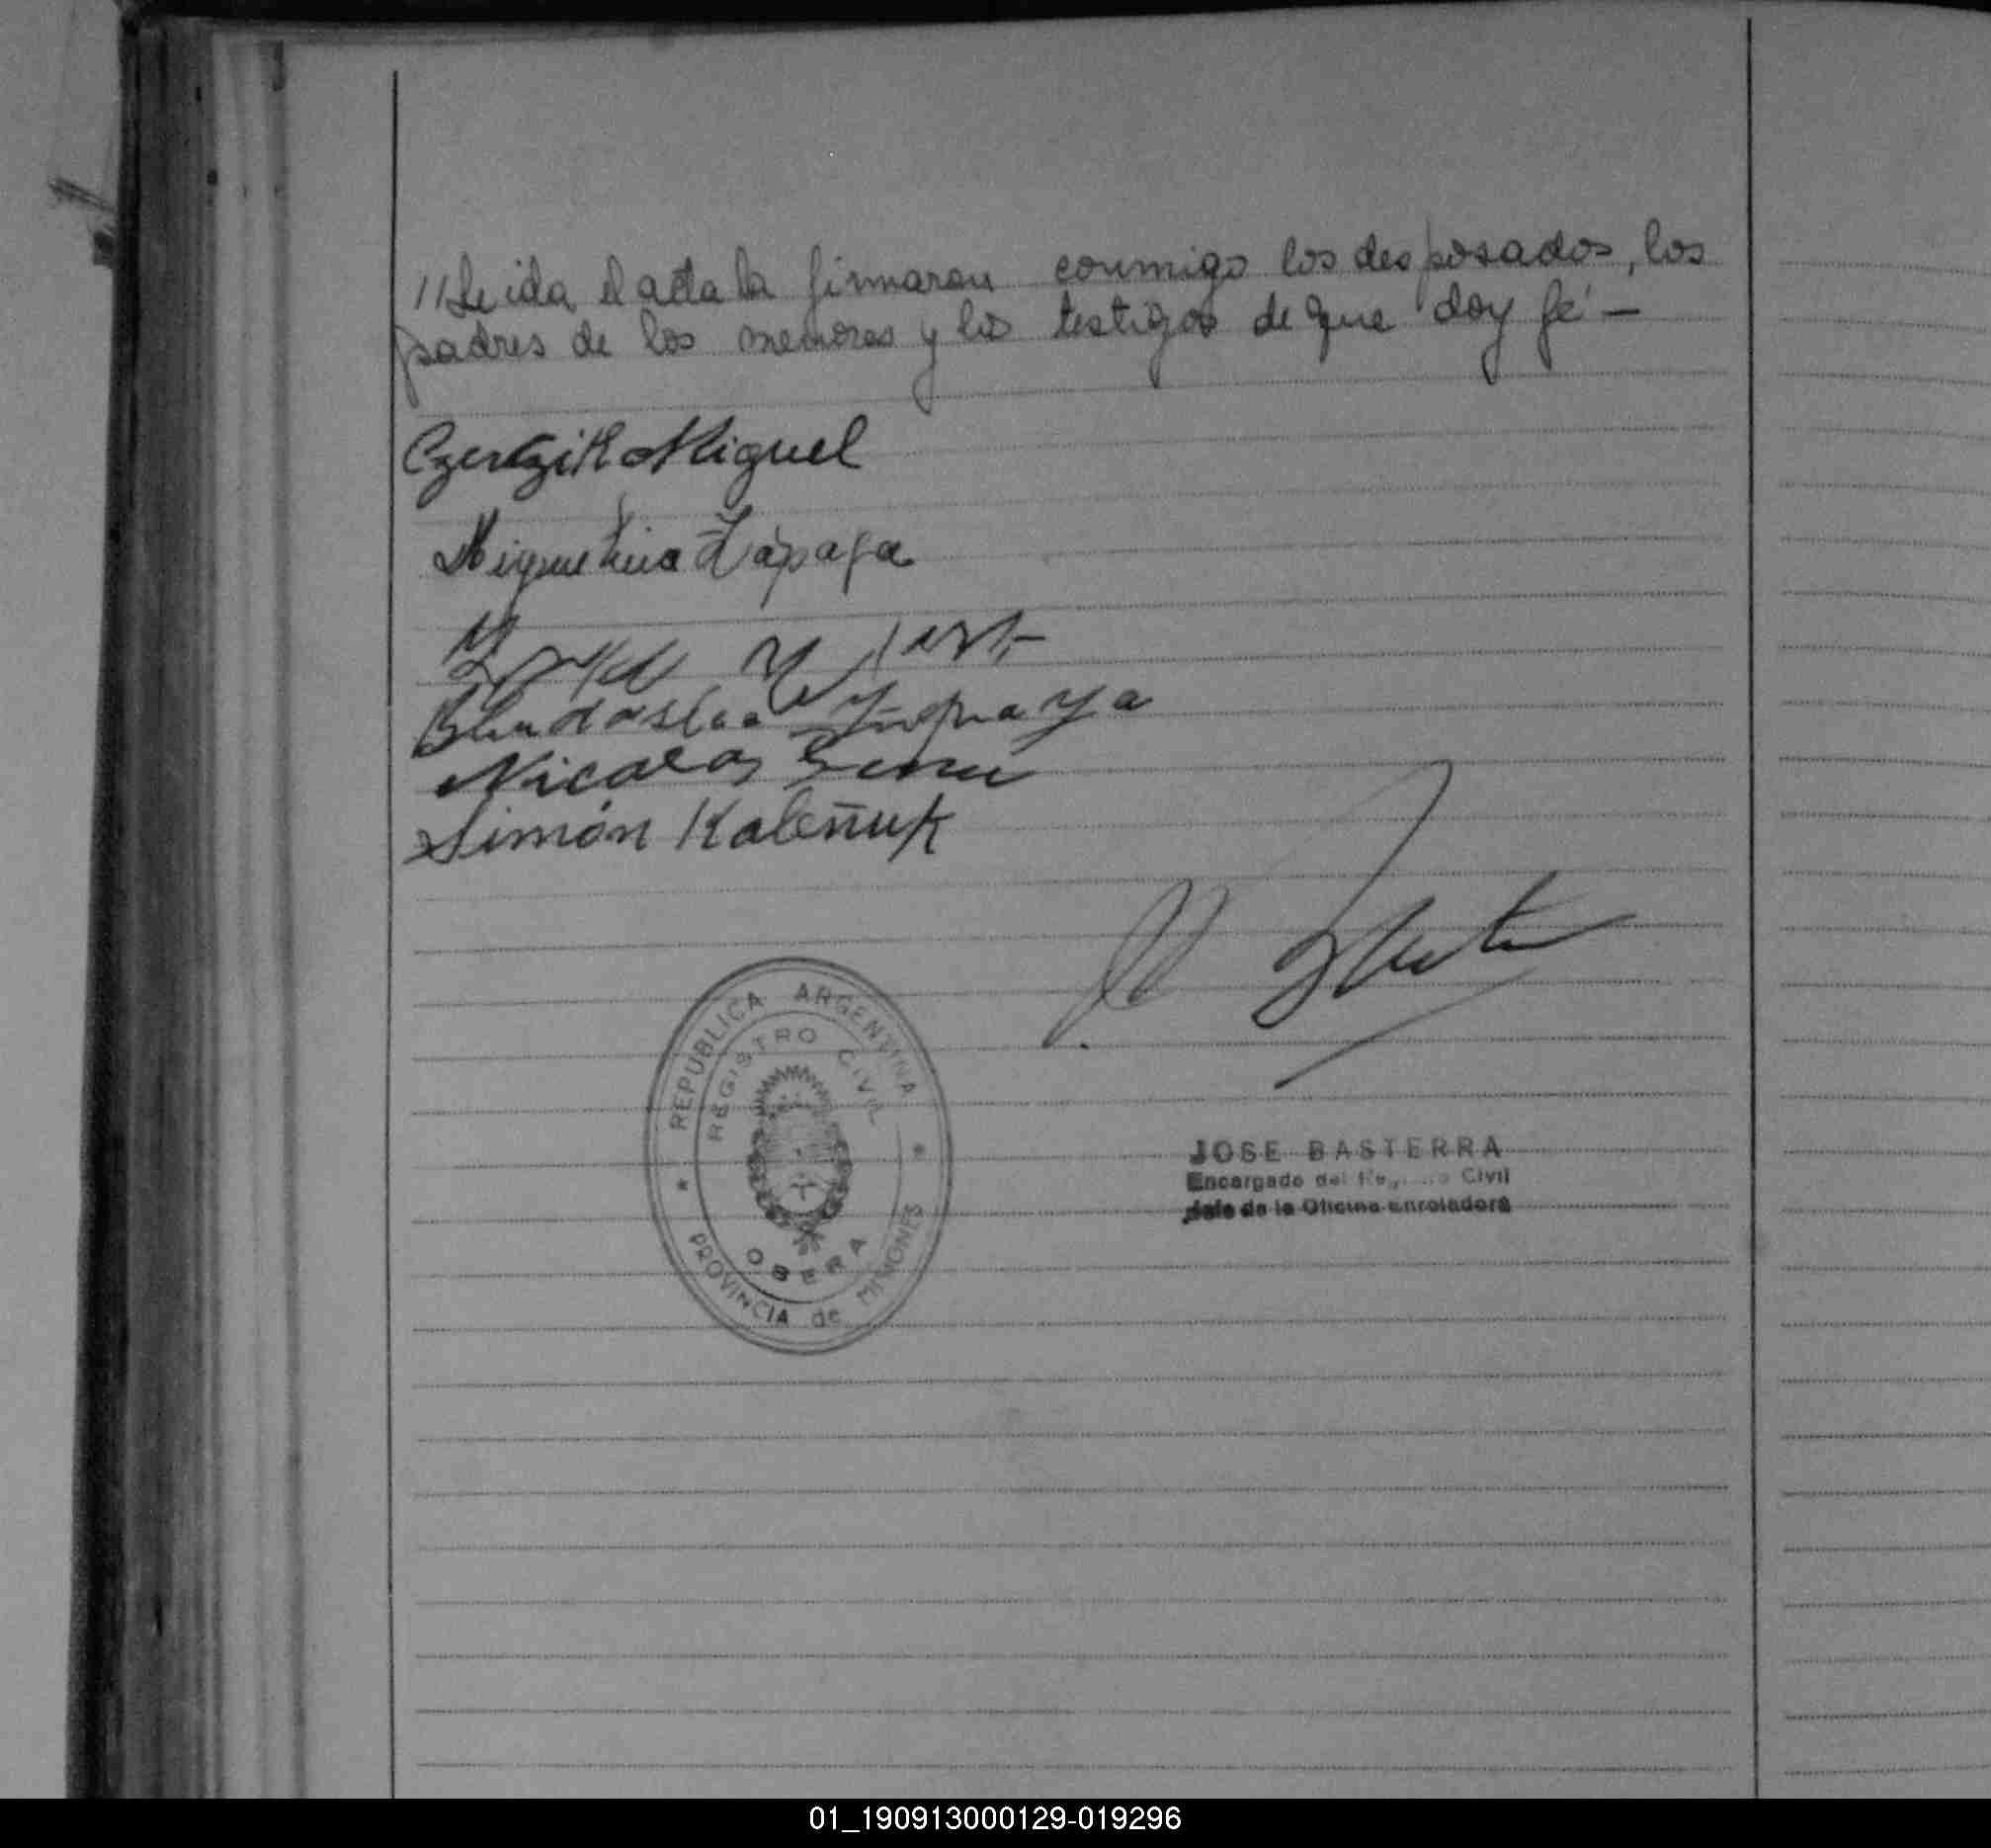 //Leida el acta la firmaron conmigo los desposados, los
padres de los menores y los testigos de que doy fé —
Miguel
Miguelina Zapaya
Nicolas
Simón Kaleñuk
REPUBLICA ARGENTINA
REGISTRO CIVIL
OBERA
PROVINCIA de MISIONES
JOSE BASTERRA
Encargado del Registro Civil
Jefe de la Oficina enroladora
01_190913000129-019296